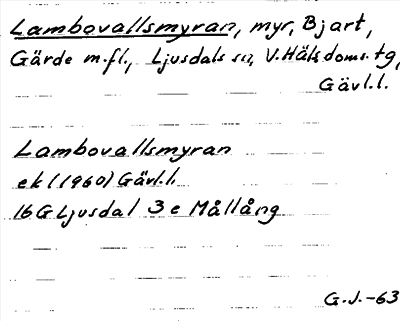 Lambovallsmyran, myr, Bjart,
Gärde m.fl., Ljusdals sn, V.Häls.doms.tg,
Gävl.l.
Lambovallsmyran
ek l (1960) Gävl.l.
16G Ljusdal 3 e Mållång
G.J.-63